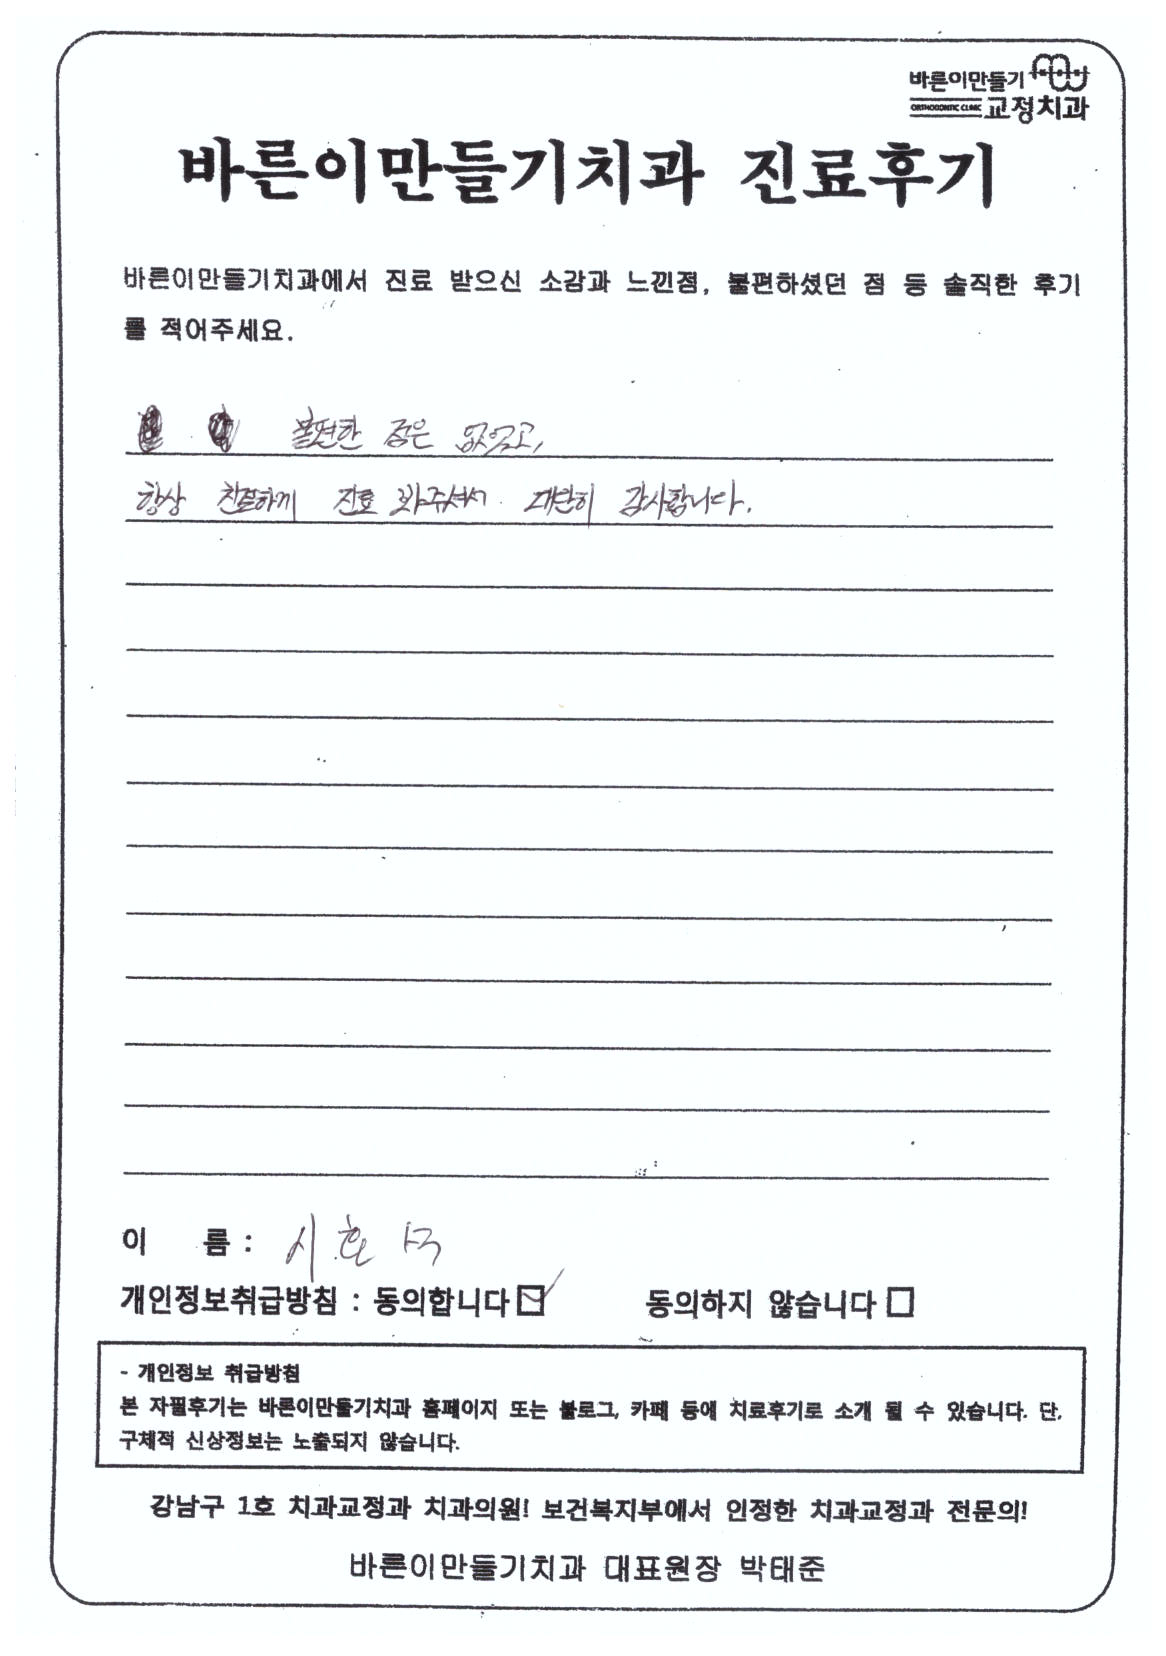 바른이만들기
ORTHODONTIC CLINIC 교정치과
바른이만들기치과 진료후기
바른이만들기치과에서 진료 받으신 소감과 느낀점, 불편하셨던 점 등 솔직한 후기
를 적어주세요.
불편한 점은 없었고,
항상 친절하게 진료 봐주셔서 대단히 감사합니다.
이 름 :
개인정보취급방침 : 동의합니다 ☑ 동의하지 않습니다 □
- 개인정보 취급방침
본 자필후기는 바른이만들기치과 홈페이지 또는 블로그, 카페 등에 치료후기로 소개 될 수 있습니다. 단,
구체적 신상정보는 노출되지 않습니다.
강남구 1호 치과교정과 치과의원! 보건복지부에서 인정한 치과교정과 전문의!
바른이만들기치과 대표원장 박태준